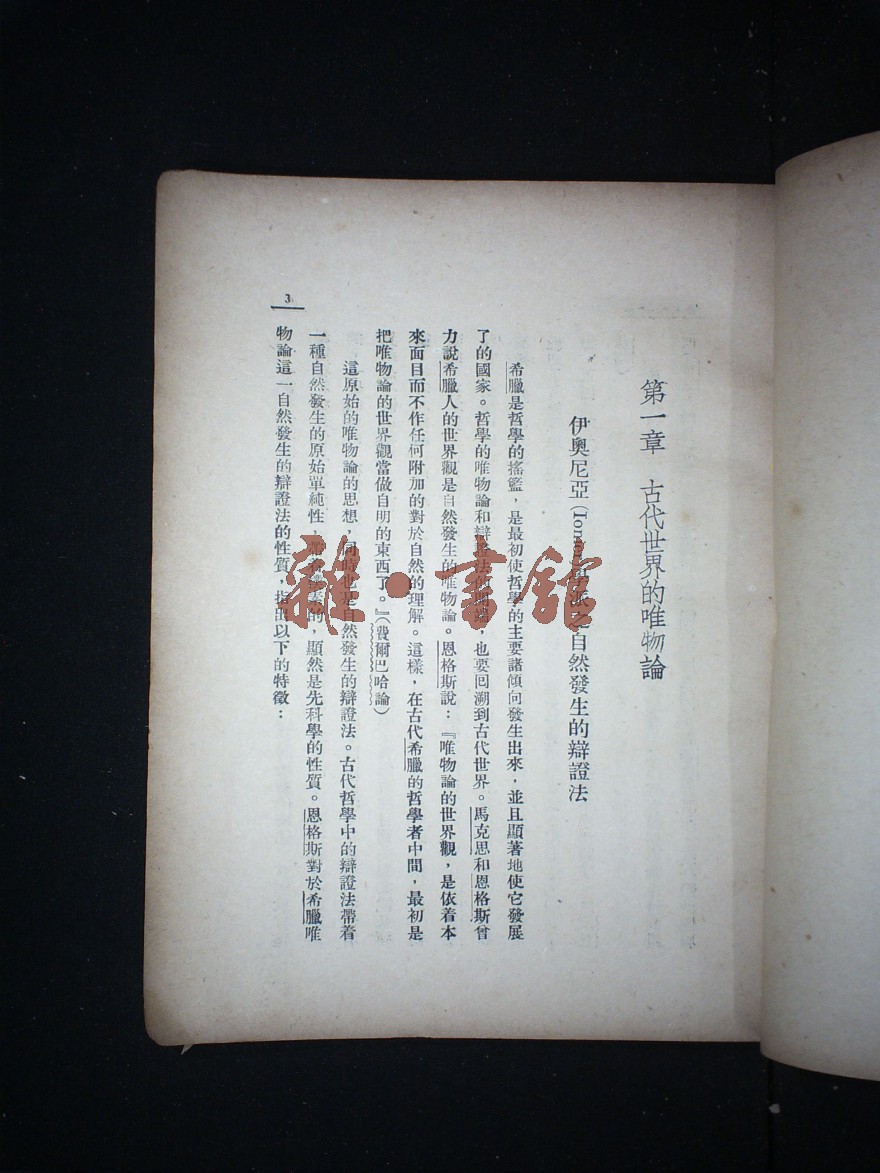 第一章　古代世界的唯物論
伊奧尼亞(Ionian之自然發生的辯證法
希臘是哲學的搖籃，是最初使哲學的主要諸傾向發生出來，並且顯著地使它發展
了的國家。哲學的唯物論和辯證法的，也要回溯到古代世界。馬克思和恩格斯曾
力說希臘人的世界觀是自然發生的唯物論。恩格斯說：『唯物論的世界觀，是依着本
來面目而不作任何附加的對於自然的理解。這樣，在古代希臘的哲學者中間，最初是
把唯物論的世界觀當做自明的東西了。』(費爾巴哈論)
這原始的唯物論的思想，同時也是自然發生的辯證法。古代哲學中的辯證法帶着
一種自然發生的原始單純性，素的，顯然是先科學的性質。恩格斯對於希臘唯
物論這一自然發生的辯證法的性質，指出以下的特徵：
3
雜·書館